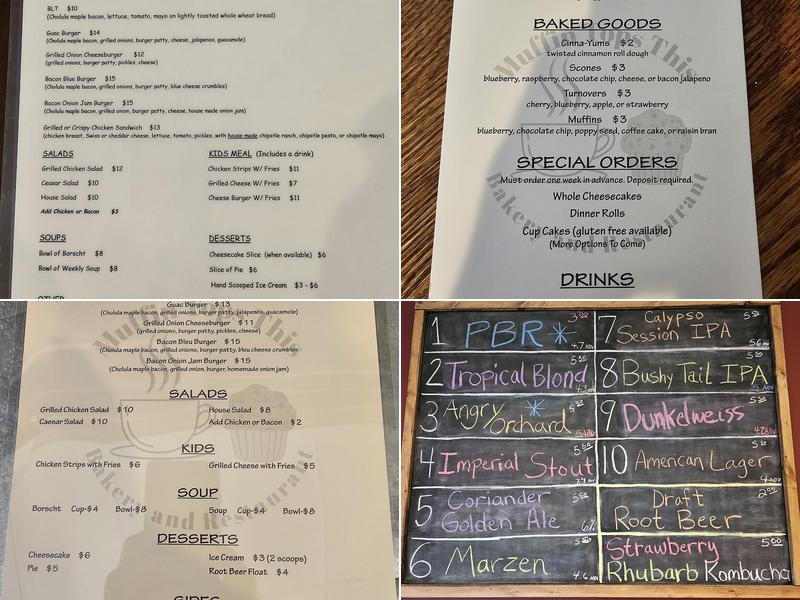 BLT $10
(Cholula maple bacon, lettuce, tomato, mayo on lightly toasted whole wheat bread)
Guac Burger $14
(Cholula maple bacon, grilled onions, burger patty, cheese, jalapenos, guacamole)
Grilled Onion Cheeseburger $12
(grilled onions, burger patty, pickles, cheese)
Bacon Blue Burger $15
(Cholula maple bacon, grilled onions, burger patty, blue cheese crumbles)
Bacon Onion Jam Burger $15
(Cholula maple bacon, grilled onion, burger patty, cheese, house made onion jam)
Grilled or Crispy Chicken Sandwich $13
(chicken breast, Swiss or cheddar cheese, lettuce, tomato, pickles, with house made chipotle ranch, chipotle pesto, or chipotle mayo)
SALADS
Grilled Chicken Salad $12
Ceasar Salad $10
House Salad $10
Add Chicken or Bacon $3
KIDS MEAL (Includes a drink)
Chicken Strips W/ Fries $11
Grilled Cheese W/ Fries $7
Cheese Burger W/ Fries $11
SOUPS
Bowl of Borscht $8
Bowl of Weekly Soup $8
DESSERTS
Cheesecake Slice (when available) $6
Slice of Pie $6
Hand Scooped Ice Cream $3 - $6
OTHER
Muffin Tops This
Bakery and Restaurant
BAKED GOODS
Cinna-Yums $2
twisted cinnamon roll dough
Scones $3
blueberry, raspberry, chocolate chip, cheese, or bacon jalapeno
Turnovers $3
cherry, blueberry, apple, or strawberry
Muffins $3
blueberry, chocolate chip, poppy seed, coffee cake, or raisin bran
SPECIAL ORDERS
Must order one week in advance. Deposit required.
Whole Cheesecakes
Dinner Rolls
Cup Cakes (gluten free available)
(More Options To Come)
DRINKS
Muffin Tops This
Bakery and Restaurant
Guac Burger $13
(Cholula maple bacon, grilled onions, burger patty, jalapenos, guacamole)
Grilled Onion Cheeseburger $11
(grilled onions, burger patty, pickles, cheese)
Bacon Bleu Burger $15
(Cholula maple bacon, grilled onions, burger patty, bleu cheese crumbles)
Bacon Onion Jam Burger $15
(Cholula maple bacon, grilled onion, burger, homemade onion jam)
SALADS
Grilled Chicken Salad $10
House Salad $8
Caesar Salad $10
Add Chicken or Bacon $2
KIDS
Chicken Strips with Fries $6
Grilled Cheese with Fries $5
SOUP
Borscht Cup-$4 Bowl-$8
Soup Cup-$4 Bowl-$8
DESSERTS
Cheesecake $6
Ice Cream $3 (2 scoops)
Pie $5
Root Beer Float $4
SIDES
1 PBR 3.00
4.7 ABV
2 Tropical Blond 5.50
3 Angry Orchard 5.50
4 Imperial Stout 5.50
7.9 ABV
5 Coriander Golden Ale 5.50
6%
6 Marzen 5.50
4.6 ABV
7 Calypso Session IPA 5.50
8 Bushy Tail IPA 5.50
9 Dunkelweiss 5.50
10 American Lager 5.50
Draft Root Beer 2.00
Strawberry Rhubarb Kombucha 5.00